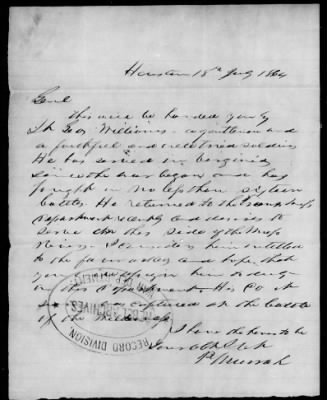 Houston 18th July 1864
Genl
this will be handed you by
Lt Geo Williams a gentleman and
a faithful and excellent soldier
He has served in Virginia
since the war began and has
fought in no less than sixteen
battles. He returned to the Trans Miss
Department recently and desires to
serve on this side of the Miss
River. I consider him entitled
to the favor and hope that
you will assign him to duty
in this Department. His Co
was captured at the battle
of the Wilderness
I have the honor to be
Your obt Servt
P. Murrah
RECORD DIVISION
WAR DEPARTMENT
REBEL ARCHIVES